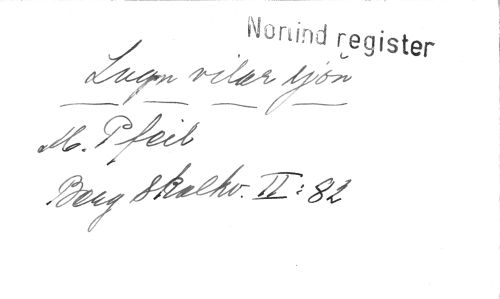 Norlind register
Lugn vilar sjön
M. Pfeil
Berg Skolkv. II: 82